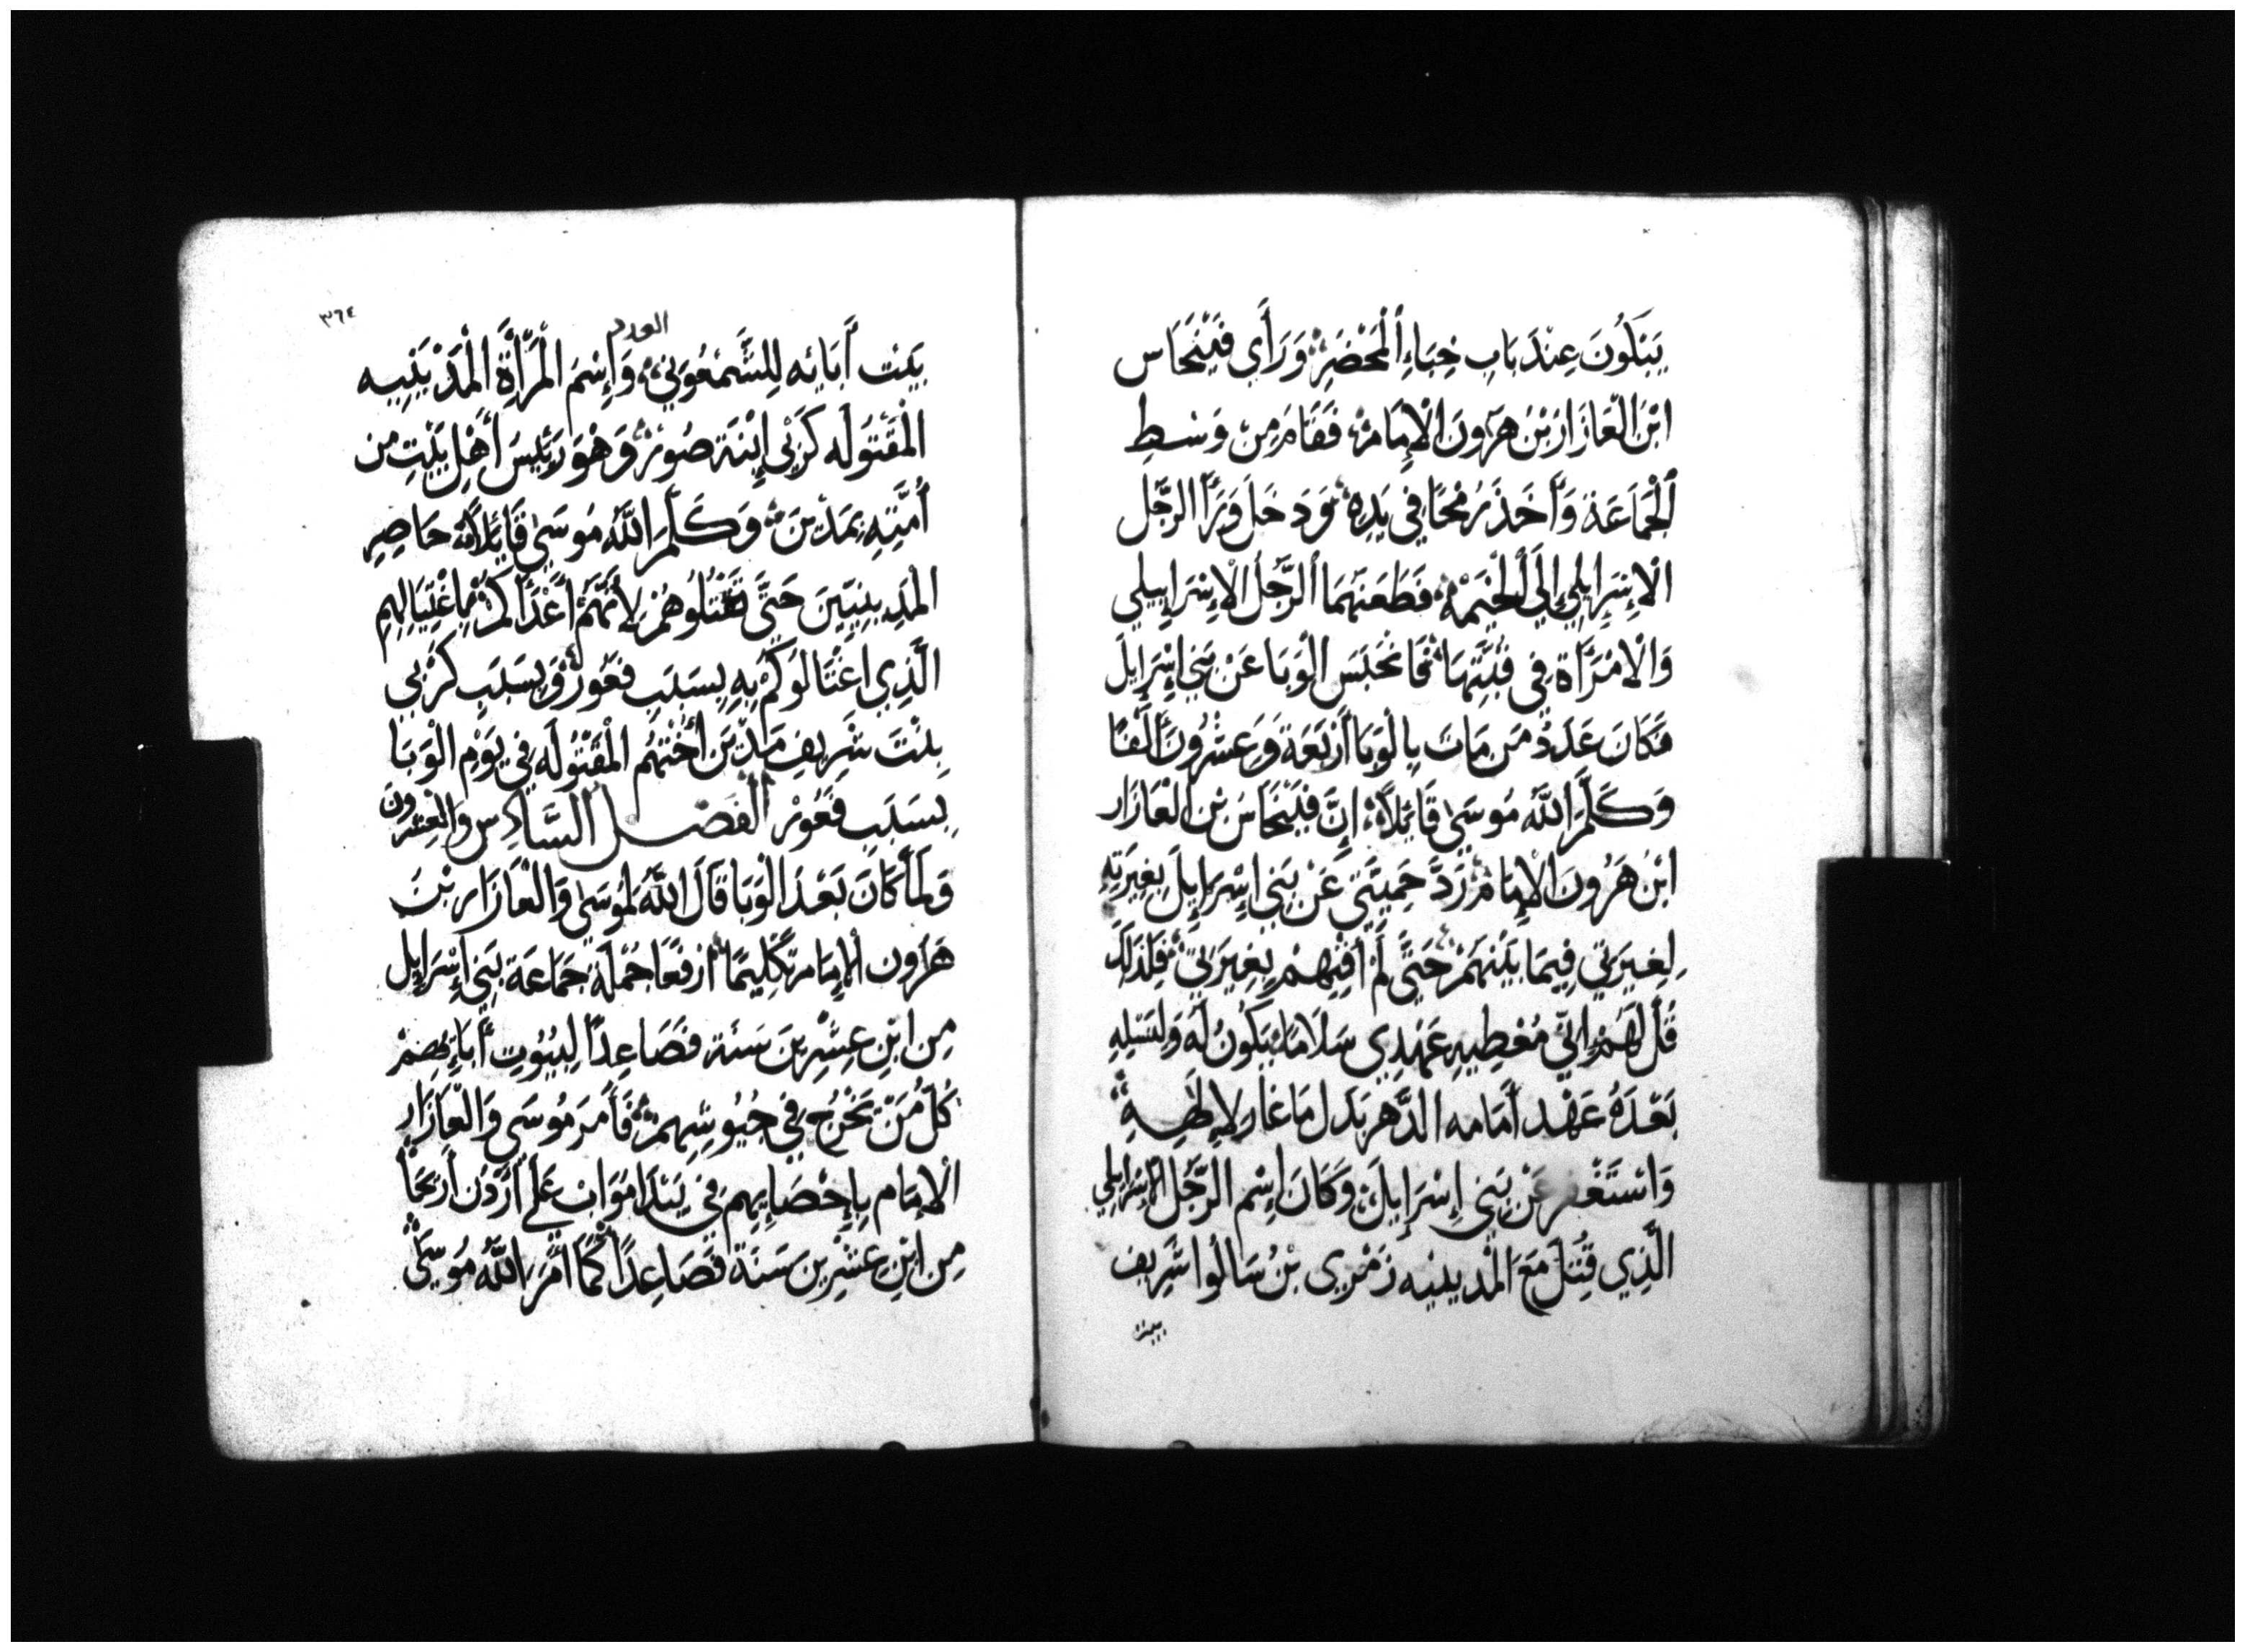 يَبْكُونَ عِنْدَ بَابِ خِبَاءِ اَلْمَحْضَرِ وَرَأَي فَيْنْحَاس
ابْنَ الْعَازَار بْنِ هَرُونَ الْإِمَامْ فَقَامَ مِنْ وَسْطِ
اَلْجَمَاعَة وَأَخَذَ رُمْحًا فِي يَدِهِ وَدَخَلَ وَرَآ الرَّجُل
الْإِسْرَايِلِي إِلَي اَلْخَيْمَه فَطَعَنَهُمَا اَلرَّجُل الْإِسْرَايِيلِي
وَالْامْرَأَة فِي قُبَّتِهَا فَانْحَبَسَ الْوَبَا عَنْ بَنِي اِسْرَايِلَ
فَكَانَ عَدَدُ مَن مَاتَ بِالْوَبَا أَرْبَعَة وَعِشْرُونَ أَلْفًا
وَكَلَّمَ اللَّهُ مُوسَى قَايِلًا إِنَّ فِيْنْحَاسَ بْنِ الْعَازَار
ابْنُ هَرُونَ الْإِمَامْ رَدَّ حَمِيَّتِي عَنْ بَنِي اِسْرَايِلَ بِغِيرَتِهِ
لِغِيرَتِي فِيمَا بَيْنَهُمْ حَتَّى لَمْ أُفْنِيهِمْ بِغِيرَتِي فَلِذَلِكَ
قُل لَهُمْ إِنِّي مُعْطِيهِ عَهْدِي سَلَامًا يَكُونُ لَهُ وَلِنَسْلِهِ
بَعْدَهُ عَهْد أَمَامه الدَّهر بَدَل مَا غَار لِإِلَهِهِ
وَاسْتَغْفَر عَنْ بَنِي إِسْرَايِلَ وَكَانَ اِسْم الرَّجُل الْإِسْرَايِلِي
الَّذِي قُتِلَ مَعَ الْمَديِنيه زَمْرِي بْنُ سَالُوا شَرِيف
بيت
٣٦٤
العدد
بَيْت أَبَائِه لِلشَّمْعُونِي وَإِسْمَ الْمَرْأَةِ الْمَدْيَنِيه
الْمَقْتُولَه كَزْبِي إِبْنَة صُورْ وَهْوَ رَئِيسَ أَهْلِ بَيْتِ من
أُمَّتِهِ بِمَدْيَنَ وَكَلَّمَ اللَّهُ مُوسَى قَايِلًا حَاصِرِ
الْمَدِينِيِّينَ حَتَّى تَقْتُلُوهُمْ لِأَنَّهُمْ أَعْدَاكُمْ بِاغْتِيَالِهِمِ
الَّذِي اغْتَالُوكُمْ بِهِ بِسَبَبِ فَعُورْ وَبِسَبَبِ كَزْبِي
بِنْتَ شَرِيفِ مَدْيَن أُخْتِهُم الْمَقْتُولَه فِي يَوْمِ الْوَبَا
بِسَبَبِ فَعُورْ الْفَصْل السَّادِس وَالْعِشْرُونَ
وَلَمَّا كَانَ بَعْدَ الْوَبَا قَالَ اللَّهُ لِمُوسَى وَالْعَازَار بْنَ
هَرُون الْإِمَام تَكْلِيمًا ارْفَعَا جُمْلَة جَمَاعَة بَنِي اِسْرَايِل
مِن ابْنِ عِشْرِينَ سَنَة فَصَاعِدًا لِبُيُوتِ أَبَايِهِمْ
كُلَّ مَنْ تَخْرُجُ فِي جُيُوشِهِمْ فَأَمَرَ مُوسَى وَالْعَازَار
الْإِمَام بِإِحْصَايِهِم فِي بَيْدَا مَوَاب عَلَي أُرْدُن أَرِيحَا
مِن ابْنِ عِشْرِين سَنَة فَصَاعِدًا كَمَا أَمَرَ اللَّهُ مُوسَى